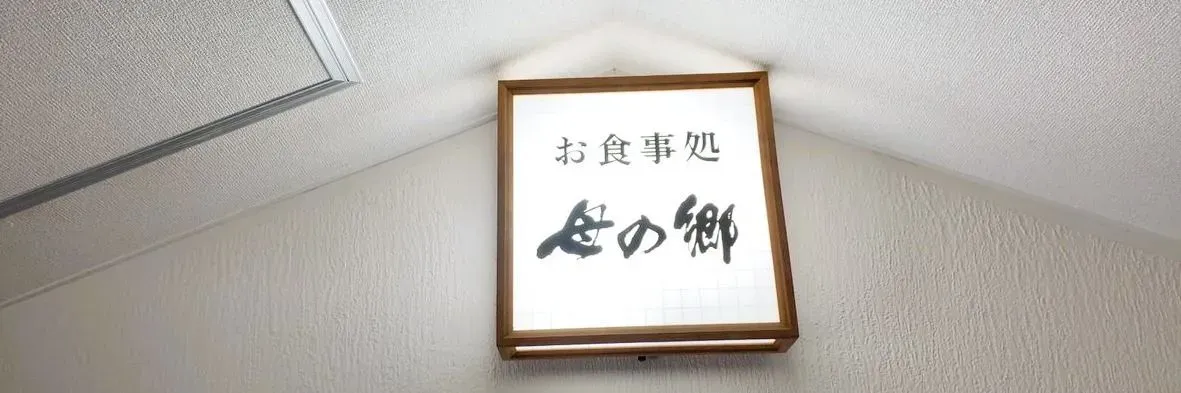 お食事処
母の郷